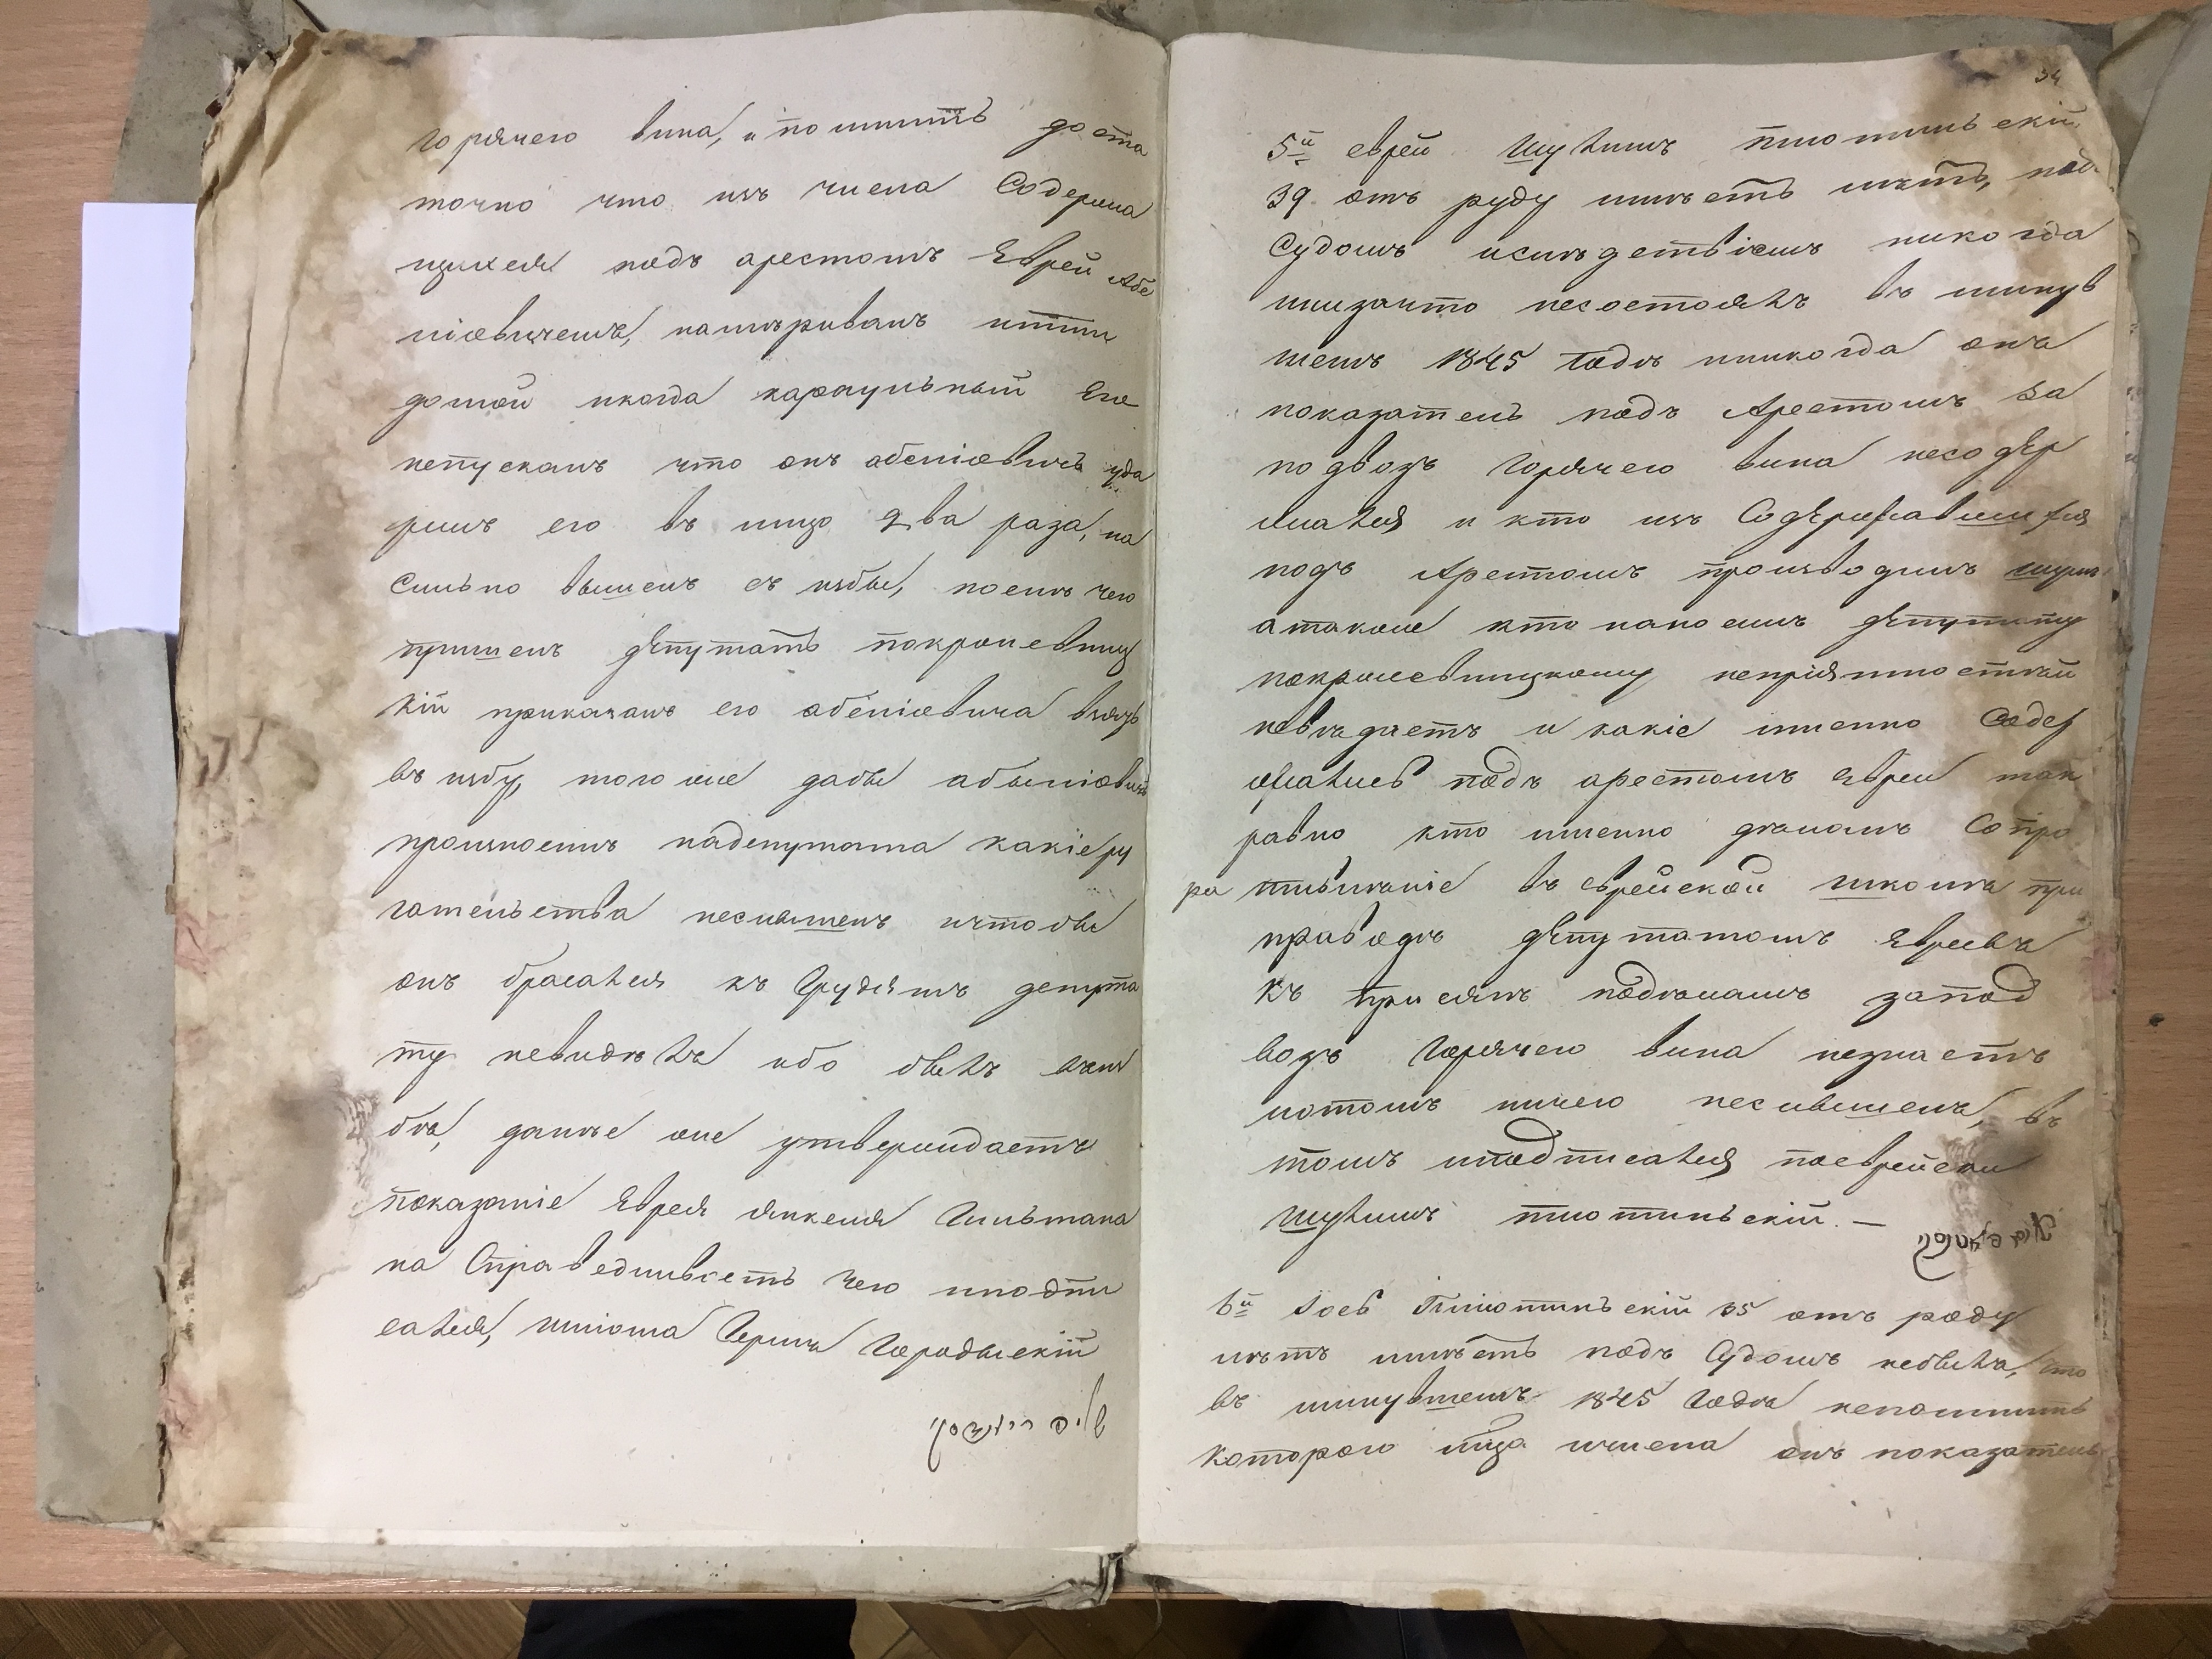 горячего вина, и помнитъ доста
точно что изъ числа Содержа
щихся подъ арестомъ Еврей Абе
ліовичемъ, намѣривалъ итти
домой икогда караульный Его
непускалъ что онъ абеліовичь уда
рилъ его въ лицо два раза, на
сильно вышелъ съ избы, послѣ чего
пришелъ дѣпутатъ покрошевниц
кій приказалъ его абеліовича взять
въ избу, того же дабы абеліовичь
произносилъ надепутата какіе ру
гательства неслышелъ ичтобы
онъ бросался къ Грудямъ депута
ту невидѣлъ ибо былъ въ из
бѣ, далѣе же утверждаетъ
показаніе Еврея янкеля Гильмана
на Справедливость чего иподпи
сался, Шліома Герша Городыскій
34
5й еврей Шулимъ плотинскій
39 отъ роду имѣетъ лѣтъ, под
Судомъ ислѣдствіемъ никогда
инизачто несостоялъ въ минув
шемъ 1845 Годѣ иникогда онъ
показатель подъ Арестомъ за
подвозъ горячего вина несодер
жался и кто изъ Содержавшихся
подъ Арестомъ производилъ шумъ
атакже кто наносилъ дѣпутату
покрошевницкому непріятностей
невѣдаетъ и какіе именно Содер
жались подъ арестомъ евреи так
равно кто именно дѣлалъ Сопро
тивленіе въ еврейской школѣ при
приводѣ дѣпутатомъ Евреевъ
къ присягѣ поделамъ запод
возъ Горячего вина незнаетъ
иотомъ ничего неслышелъ, въ
томъ иподписался поеврейски
Шулимъ плотинскій. —
6й Іось Плотинскій 35 отъ роду
лѣтъ имѣетъ подъ Судомъ небылъ, что
въ минувшемъ 1845 Годѣ непомнитъ
которого мѣсяца ичисла онъ показатель